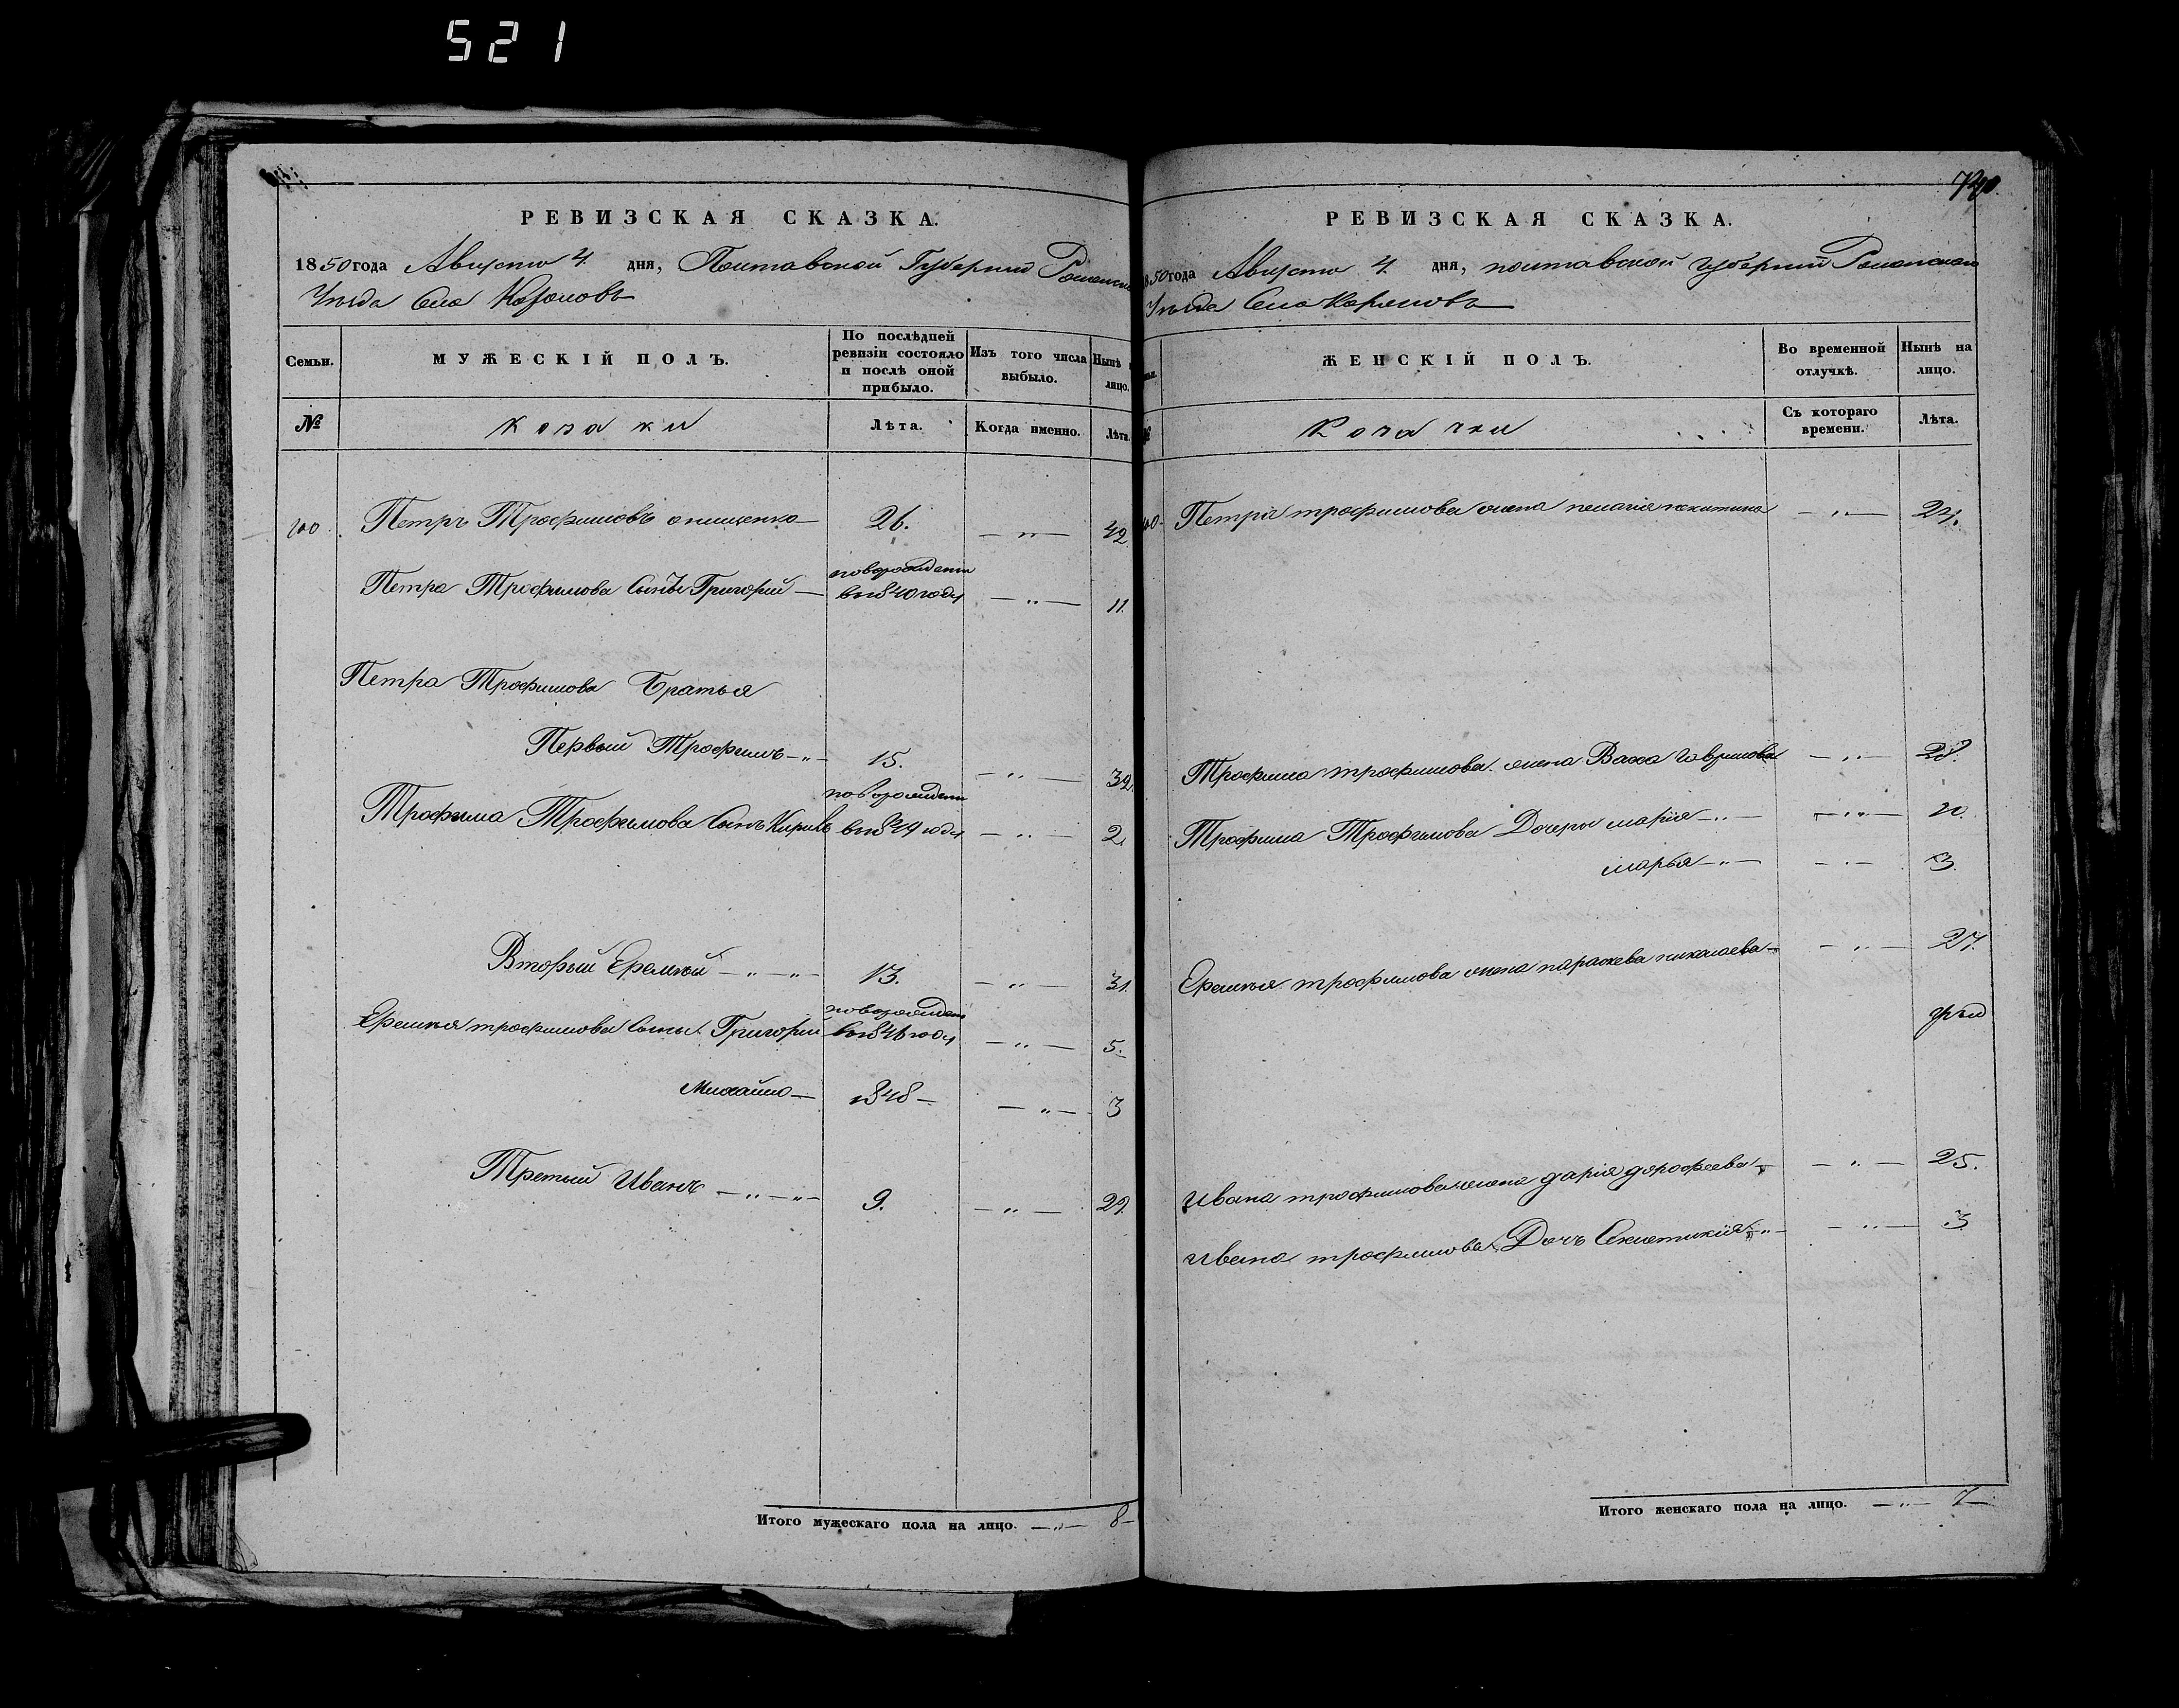 521
РЕВИЗСКАЯ СКАЗКА.
1850 года Августа 4. дня, Полтавской Губернии Роменска
Уезда Село
МУЖЕСКІЙ ПОЛЪ.
Семьи.
По послѣдней ревизіи состояло и послѣ оной прибыло.
Изъ того числа выбыло.
Нынѣ лицо.
№
козаки
Лѣта.
Когда именно.
Лѣта.
100. Петръ Трофимовъ онищенко 26. — „ — 42.
новорожденъ
Петра Трофимова Сынъ Григорий — в 1840 году — „ — 11.
Петра Трофимова Братья
Первый Трофимъ — „ — 15. — „ — 32.
новорожденъ
Трофима Трофимова Сынъ Кирилъ в 1849 году — „ — 2.
Вторый Еремѣй — „ — „ — 13. — „ — 31.
новорожденъ
Еремѣя трофимова Сыны Григорий в 1846 году — „ — 5.
Михайло — 1848 — — „ — 3
Третый Иванъ — „ — „ — 9. — „ — 29.
Итого мужескаго пола на лицо. — „ — 8 —
РЕВИЗСКАЯ СКАЗКА.
1850 года Августа 4. дня, полтавской губерний Роменскаго
Уезда Село
ЖЕНСКІЙ ПОЛЪ.
Во временной отлучкѣ.
Нынѣ на лицо.
№
Козачки
Съ котораго времени.
Лѣта.
100. Петра трофимова жена пелагія никитина — „ — 24.
Трофима трофимова жена Васса гаврилова — „ — 28.
Трофима Трофимова Дочери марія — „ — — „ — 10.
марья — „ — — „ — 3.
Еремѣя трофимова жена параскева николаева — — „ — 27.
Ивана трофимова жена дарія дорофеева — — „ — 25.
Ивана трофимова Дочъ Секлетикія — „ — — „ — 3
Итого женскаго пола на лицо. — „ — 7 —